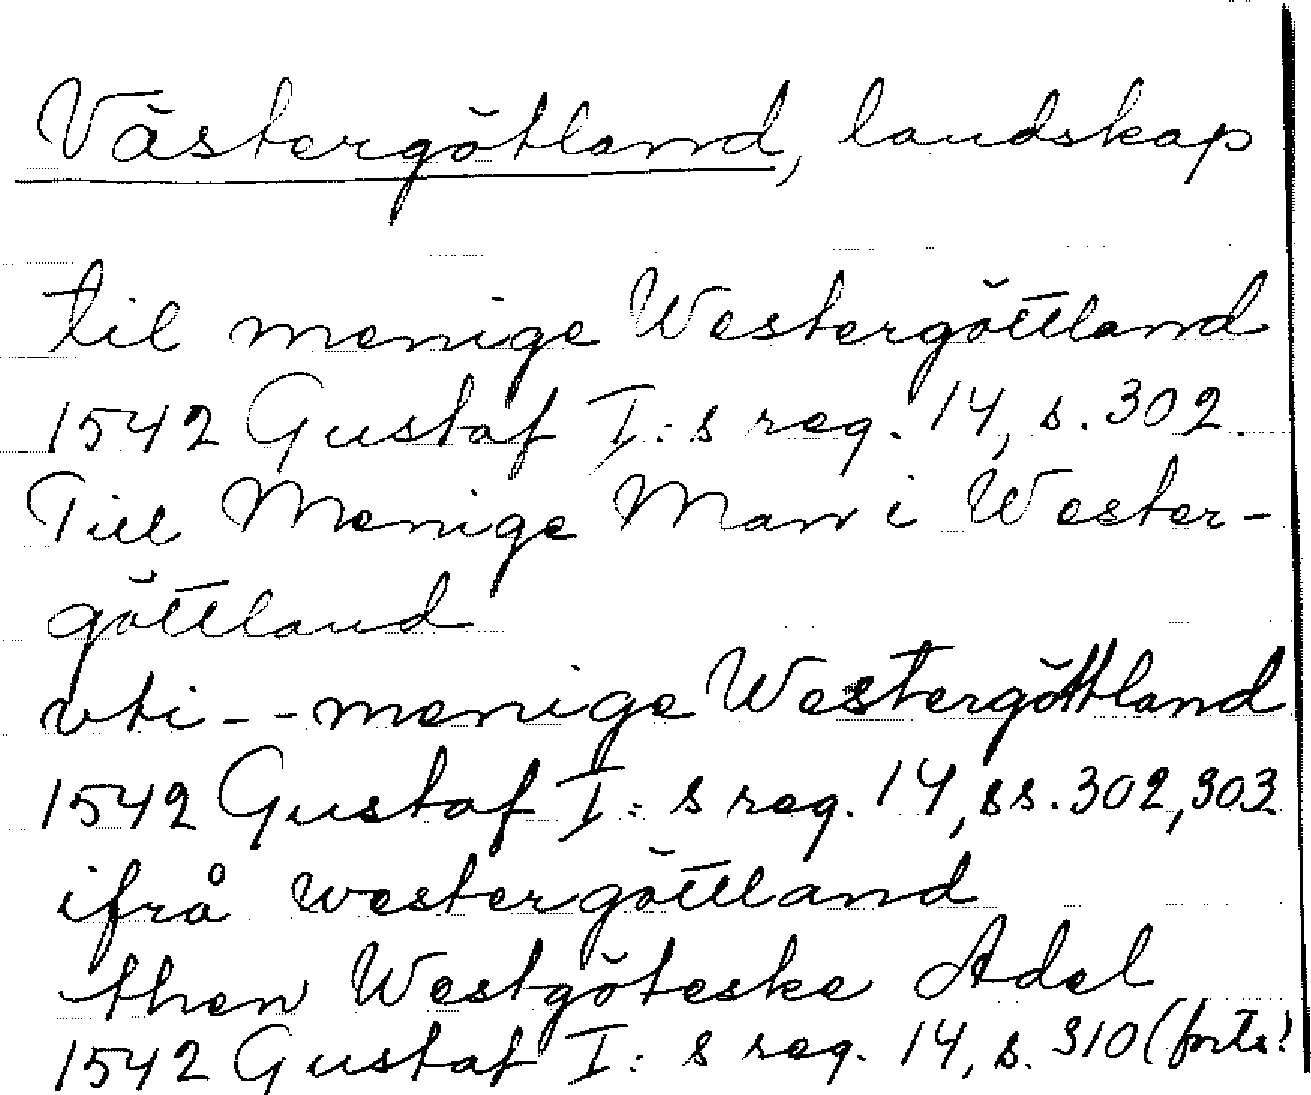 Västergötland, landskap
til menige Westergöttland
1542 Gustaf I:s reg. 14, s. 302.
Till Menige Man i Wester-
göttland
vti -- menige Westergöttland
1542 Gustaf I:s reg. 14, ss. 302, 303
ifrå westergöttland
then Westgöteske Adel
1542 Gustaf I:s reg. 14, s. 310 (forts!